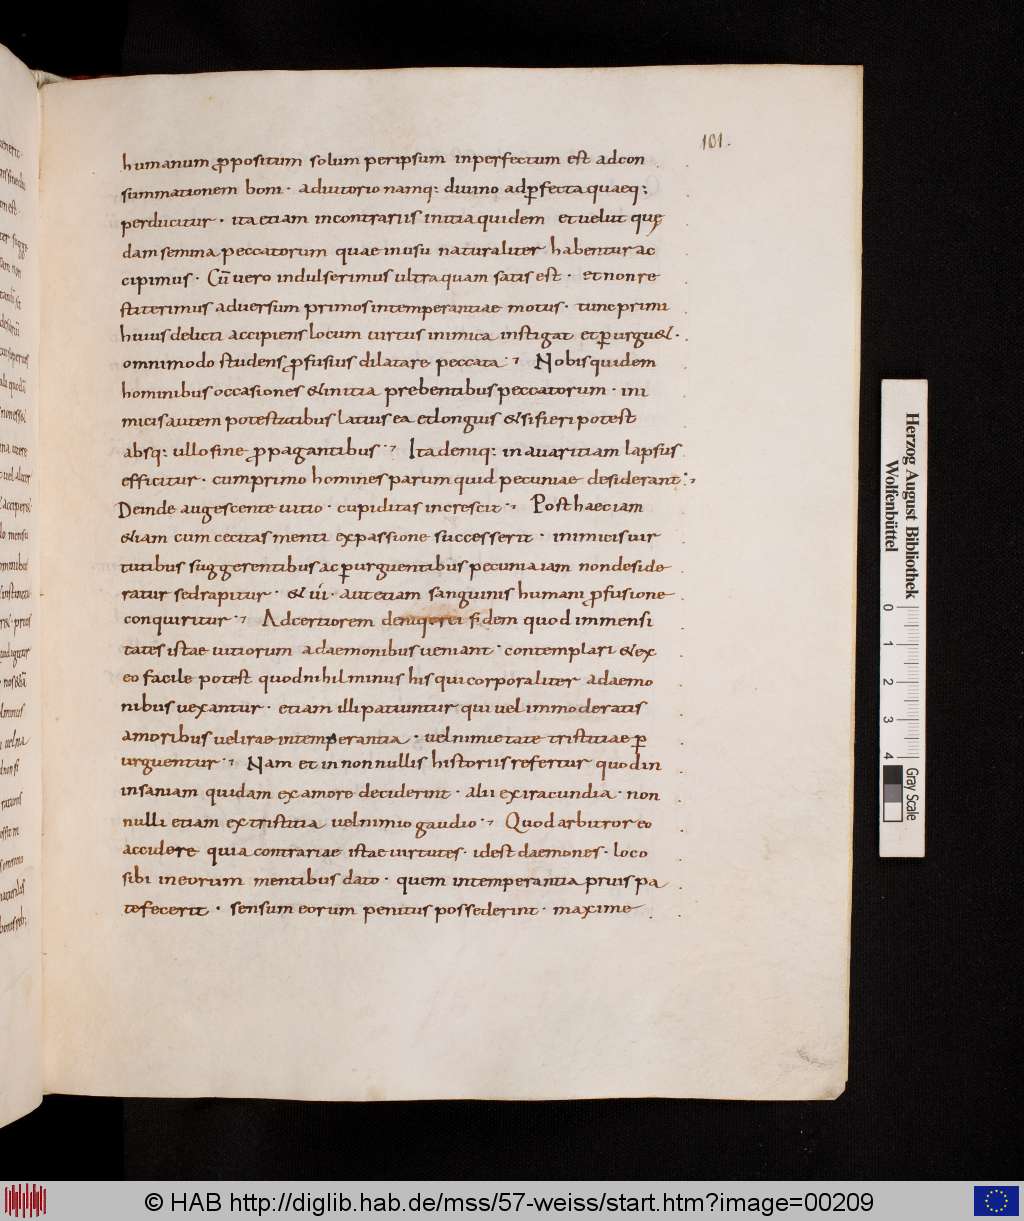 101.
humanum ꝓpositum solum peripsum inperfectum est adcon
summationem boni · adiutorio namq: diuino adꝑfecta quaeq:
perducitur · ita etiam incontrariis initia quidem et uelut quę
dam semina peccatorum quae in usu naturaliter habentur ac
cipimus · Cū uero indulserimus ultra quam satis est · et non re
stiterimus aduersum primos intemperantiae motus · tunc primi
huius delicti accipiens locum uirtus inimica instigat et ꝑurgu& ·
omnimodo studens ꝓfusius dilatare peccata · Nobis quidem
hominibus occasiones & initia prebentibus peccatorum · ini
micis autem potestatibus latius ea et longius & si fieri potest
absq: ullo fine ꝓpagantibus · Ita deniq: in auaritiam lapsus
efficitur · cum primo homines parum quid pecuniae desiderant ·
Deinde augescente uitio · cupiditas increscit · Post haec iam
&iam cum cecitas menti ex passione successerit · inimicis uir
tutibus suggerentibus ac ꝑurguentibus pecunia iam non deside
ratur sed rapitur · & ui · aut etiam sanguinis humani ꝓfusione
conquiritur · Ad certiorem deniq: rei fidem quod immensi
tates istae uitiorum a daemonibus ueniant · contemplari & ex
eo facile potest quod nihil minus his qui corporaliter a daemo
nibus uexantur · etiam illi patiuntur qui uel immoderatis
amoribus uel irae intemperantia · uel nimietate tristitiae ꝑ
urguentur · Nam et in nonnullis historiis refertur quod in
insaniam quidam ex amore deciderint · alii ex iracundia · non
nulli etiam ex tristitia uel nimio gaudio · Quod arbitror eo
accidere quia contrariae istae uirtutes · id est daemones · loco
sibi in eorum mentibus dato · quem intemperantia prius pa
tefecerit · sensum eorum penitus possederint · maxime
Herzog August Bibliothek
Wolfenbüttel
0 1 2 3 4
Gray Scale
© HAB http://diglib.hab.de/mss/57-weiss/start.htm?image=00209